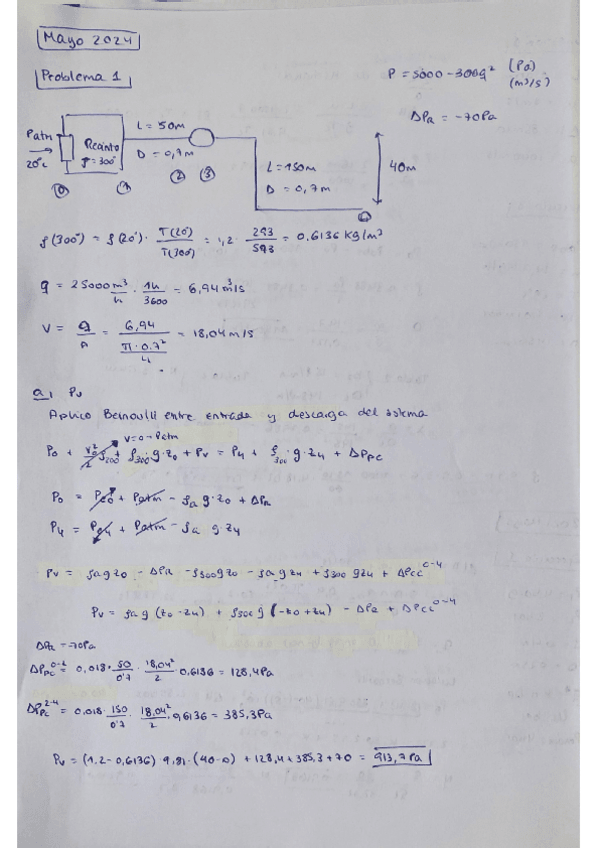 Mayo 2024
Problema 1
P = 5000 - 300q² (Pa) (m³/s)
ΔPR = -70Pa
Patm
20ºc
Recinto
ρ = 300º
L = 50m
D = 0,7m
L = 150m
D = 0,7m
40m
0 1 2 3 4
ρ(300º) = ρ(20º) · T(20º)/T(300º) = 1,2 · 293/593 = 0,6136 kg/m³
q = 25000 m³/h · 1h/3600 = 6,94 m³/s
V = q/A = 6,94/(π·0.7²/4) = 18,04 m/s
a, Pv
Aplico Bernoulli entre entrada y descarga del sistema
V=0→Patm
P0 + V0²/2 ρ300 + ρ300·g·z0 + Pv = P4 + ρ300·g·z4 + ΔPPC
P0 = Pe0 + Patm - ρa g·z0 + ΔPR
P4 = Pe4 + Patm - ρa g z4
Pv = ρa g z0 - ΔPR - ρ300 g z0 - ρa g z4 + ρ300 g z4 + ΔPcc⁰⁻⁴
Pv = ρa g (z0 - z4) + ρ300 g (-z0 + z4) - ΔPR + ΔPcc⁰⁻⁴
ΔPR = -70Pa
ΔPPC⁰⁻² = 0,018 · 50/0'7 · 18,04²/2 · 0.6136 = 128,4Pa
ΔPPC²⁻⁴ = 0,018 · 150/0'7 · 18,04²/2 · 0,6136 = 385,3Pa
Pv = (1,2 - 0,6136) 9,81 · (40-0) + 128,4 + 385,3 + 70 = 913,7 Pa